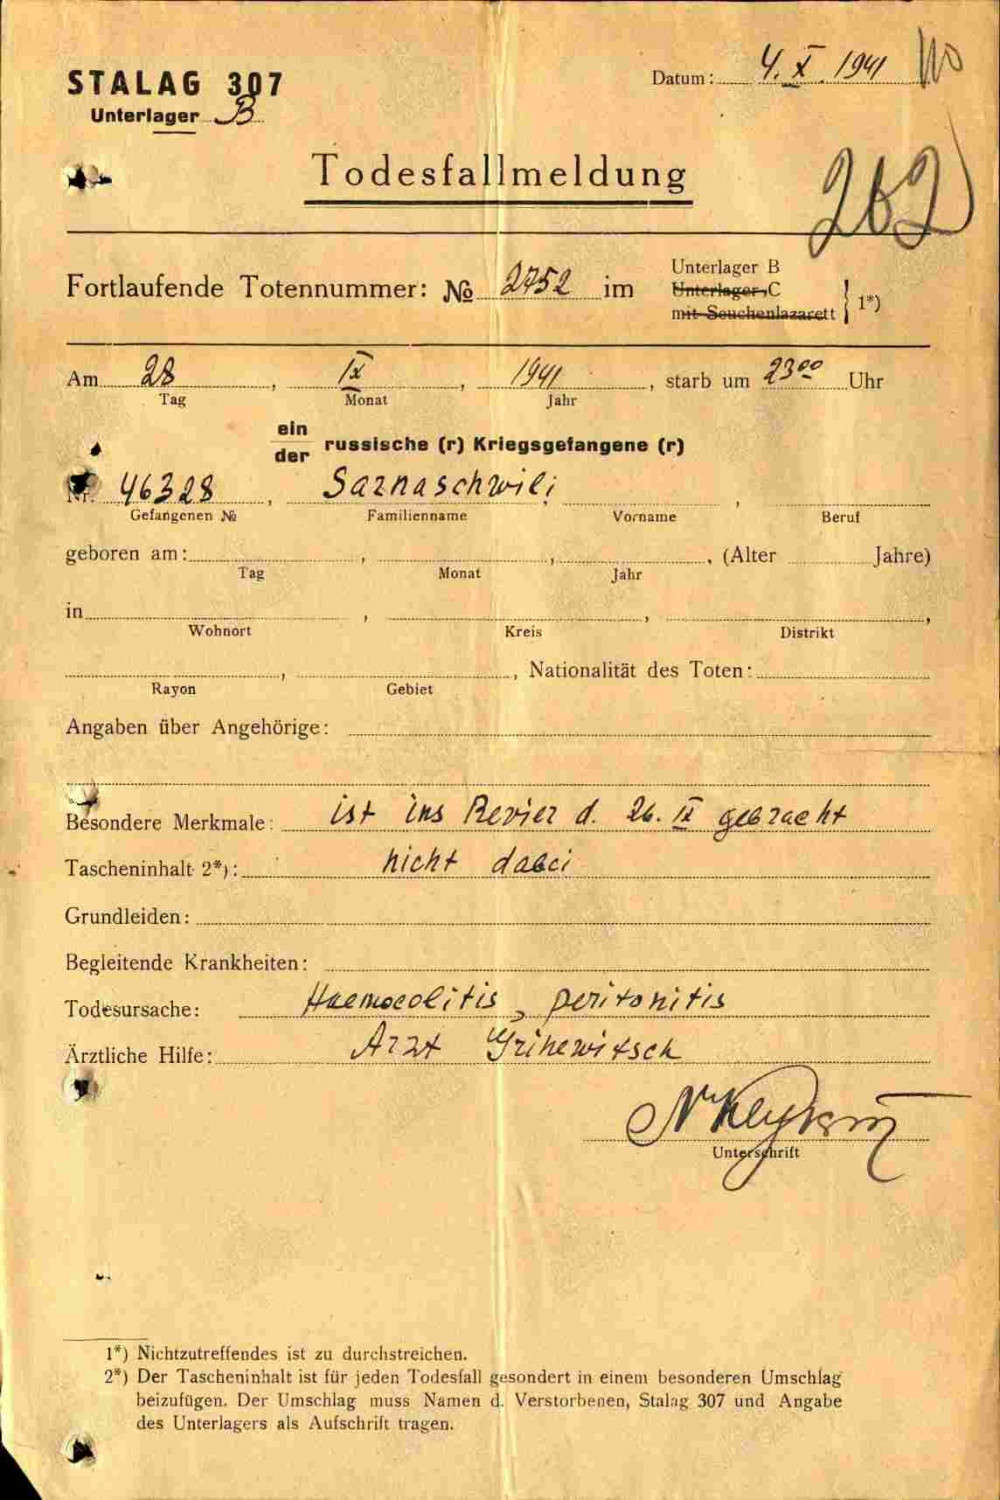 STALAG 307
Datum: 4. X. 1941
Unterlager B
Todesfallmeldung
262
Fortlaufende Totennummer: № 2752 im
Unterlager B
Unterlager C
mit Seuchenlazarett
1*)
Am 28, IX, 1941, starb um 23⁰⁰ Uhr
Tag Monat Jahr
ein
der
russische (r) Kriegsgefangene (r)
Nr. 46328, Saznaschwili, ,
Gefangenen № Familienname Vorname Beruf
geboren am: , , , (Alter Jahre)
Tag Monat Jahr
in , , ,
Wohnort Kreis Distrikt
, , Nationalität des Toten:
Rayon Gebiet
Angaben über Angehörige:
Besondere Merkmale: ist ins Revier d. 26. IX gebracht
Tascheninhalt 2*): nicht dabei
Grundleiden:
Begleitende Krankheiten:
Todesursache: Haemocolitis, peritonitis
Ärztliche Hilfe: Arzt Grinewitsch
Unterschrift
1*) Nichtzutreffendes ist zu durchstreichen.
2*) Der Tascheninhalt ist für jeden Todesfall gesondert in einem besonderen Umschlag
beizufügen. Der Umschlag muss Namen d. Verstorbenen, Stalag 307 und Angabe
des Unterlagers als Aufschrift tragen.